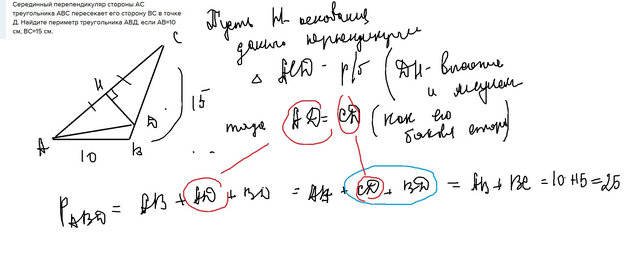 Серединный перпендикуляр стороны AC
треугольника ABC пересекает его сторону BC в точке
Д. Найдите периметр треугольника АВД, если AB=10
см, BC=15 см.
Пусть H - основание
данного перпендикуляра
△ ACD - р/б (DH - высота
и медиана)
тогда AD = CD (как его
боковые стороны)
C
H
15
D
A
B
10
P ABD = AB + AD + BD = AB + CD + BD = AB + BC = 10 + 15 = 25